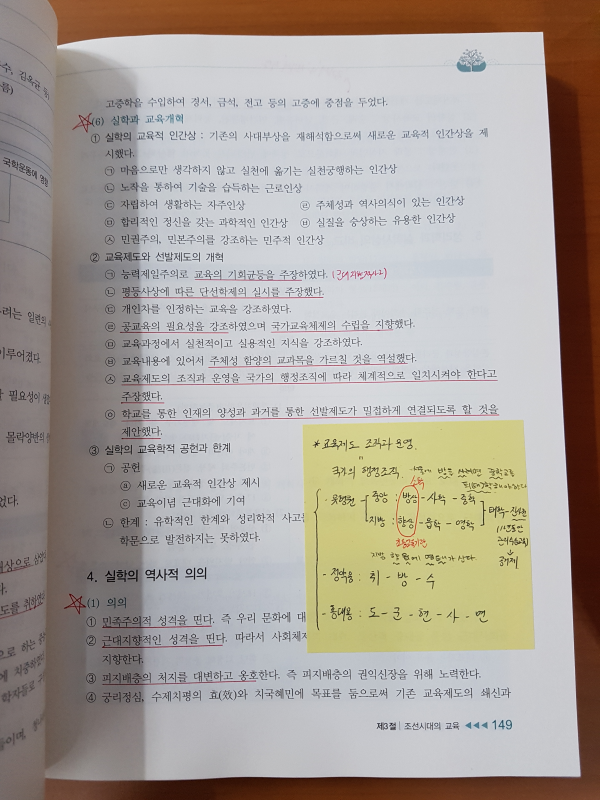 고증학을 수입하여 경서, 금석, 전고 등의 고증에 중점을 두었다.
(6) 실학과 교육개혁
① 실학의 교육적 인간상 : 기존의 사대부상을 재해석함으로써 새로운 교육적 인간상을 제
시했다.
㉠ 마음으로만 생각하지 않고 실천에 옮기는 실천궁행하는 인간상
㉡ 노작을 통하여 기술을 습득하는 근로인상
㉢ 자립하여 생활하는 자주인상 ㉣ 주체성과 역사의식이 있는 인간상
㉤ 합리적인 정신을 갖는 과학적인 인간상 ㉥ 실질을 숭상하는 유용한 인간상
㉦ 민권주의, 민본주의를 강조하는 민주적 인간상
② 교육제도와 선발제도의 개혁
㉠ 능력제일주의로 교육의 기회균등을 주장하였다.
㉡ 평등사상에 따른 단선학제의 실시를 주장했다.
㉢ 개인차를 인정하는 교육을 강조하였다.
㉣ 공교육의 필요성을 강조하였으며 국가교육체제의 수립을 지향했다.
㉤ 교육과정에서 실천적이고 실용적인 지식을 강조하였다.
㉥ 교육내용에 있어서 주체성 함양의 교과목을 가르칠 것을 역설했다.
㉦ 교육제도의 조직과 운영을 국가의 행정조직에 따라 체계적으로 일치시켜야 한다고
주장했다.
㉧ 학교를 통한 인재의 양성과 과거를 통한 선발제도가 밀접하게 연결되도록 할 것을
제안했다.
③ 실학의 교육학적 공헌과 한계
㉠ 공헌
ⓐ 새로운 교육적 인간상 제시
ⓒ 교육이념 근대화에 기여
㉡ 한계 : 유학적인 한계와 성리학적 사고
학문으로 발전하지는 못하였다.
* 교육제도 조직과 운영
국가의 행정조직
유형원 중앙 : 방상 - 사학 - 중학
지방 : 향상 - 읍학 - 영학
태학
- 정약용 : 취 - 방 - 수
- 홍대용 : 도 - 군 - 현 - 사 - 면
4. 실학의 역사적 의의
(1) 의의
① 민족주의적 성격을 띤다. 즉 우리 문화에 대
② 근대지향적인 성격을 띤다. 따라서 사회체
지향한다.
③ 피지배층의 처지를 대변하고 옹호한다. 즉 피지배층의 권익신장을 위해 노력한다.
④ 궁리정심, 수제치평의 효(效)와 치국혜민에 목표를 둠으로써 기존 교육제도의 쇄신과
제3절 조선시대의 교육 ◀◀◀ 149